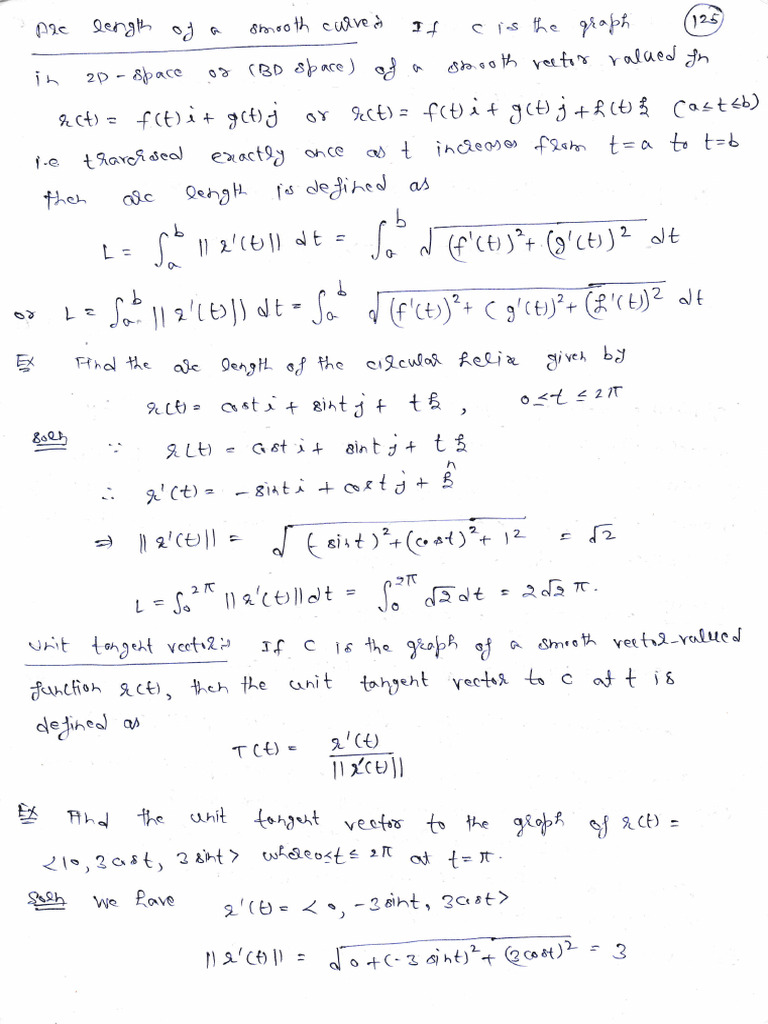 Arc length of a smooth curve:- If C is the graph (125)
in 2D-space or (3D space) of a smooth vector valued fn
r(t) = f(t) i + g(t) j or r(t) = f(t) i + g(t) j + h(t) k (a≤t≤b)
i.e traversed exactly once as t increases from t=a to t=b
then arc length is defined as
L = ∫_a^b ||r'(t)|| dt = ∫_a^b √((f'(t))² + (g'(t))²) dt
or L = ∫_a^b ||r'(t)|| dt = ∫_a^b √((f'(t))² + (g'(t))² + (h'(t))²) dt
Ex Find the arc length of the circular helix given by
r(t) = cost i + sint j + t k, 0≤t≤2π
Soln ∵ r(t) = cost i + sint j + t k
∴ r'(t) = -sint i + cost j + k̂
⇒ ||r'(t)|| = √((-sint)² + (cost)² + 1²) = √2
L = ∫_0^2π ||r'(t)|| dt = ∫_0^2π √2 dt = 2√2 π.
Unit tangent vector:- If C is the graph of a smooth vector-valued
function r(t), then the unit tangent vector to C at t is
defined as
T(t) = r'(t) / ||r'(t)||
Ex Find the unit tangent vector to the graph of r(t) =
<10, 3cost, 3sint> where 0≤t≤2π at t=π.
Soln We have r'(t) = <0, -3sint, 3cost>
||r'(t)|| = √(0 + (-3 sint)² + (3cost)²) = 3